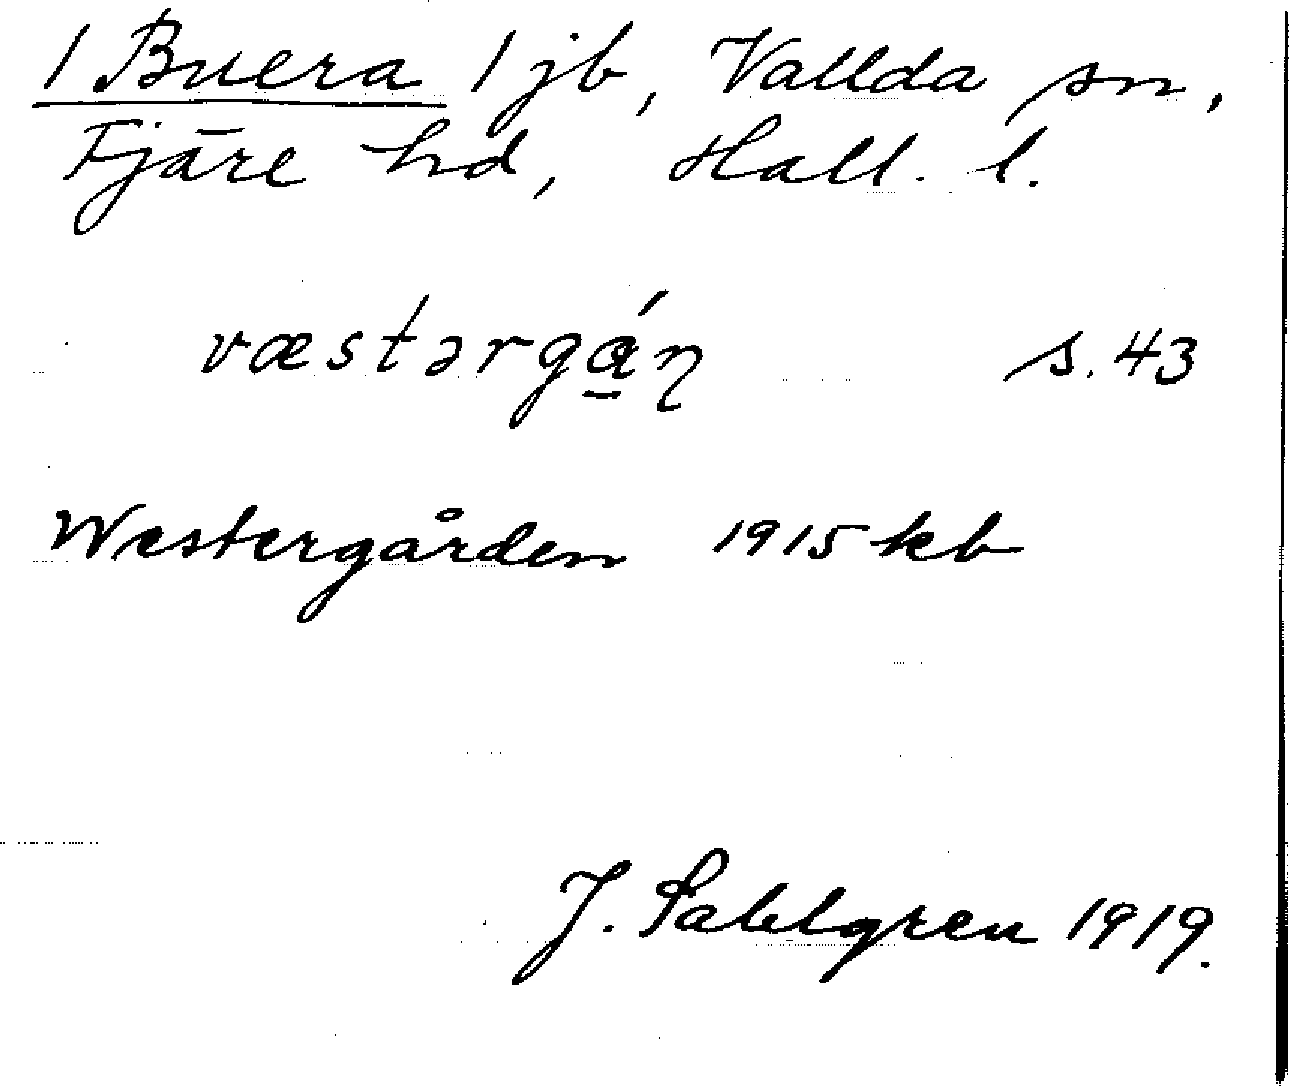 1 Buera 1 jb, Vallda sn,
Fjäre hd, Hall. l.
væstərgá̱ɳ s. 43
Westergården 1915 kb
J. Sahlgren 1919.